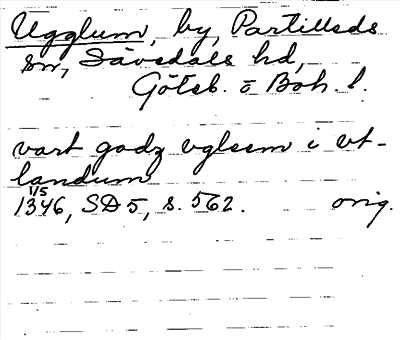 Ugglum, by, Partilleds
sn, Sävedals hd,
Göteb. o Boh. l.
vart godz vglssm i vt-
landum
1/5
1346, SD 5, s. 562. orig.